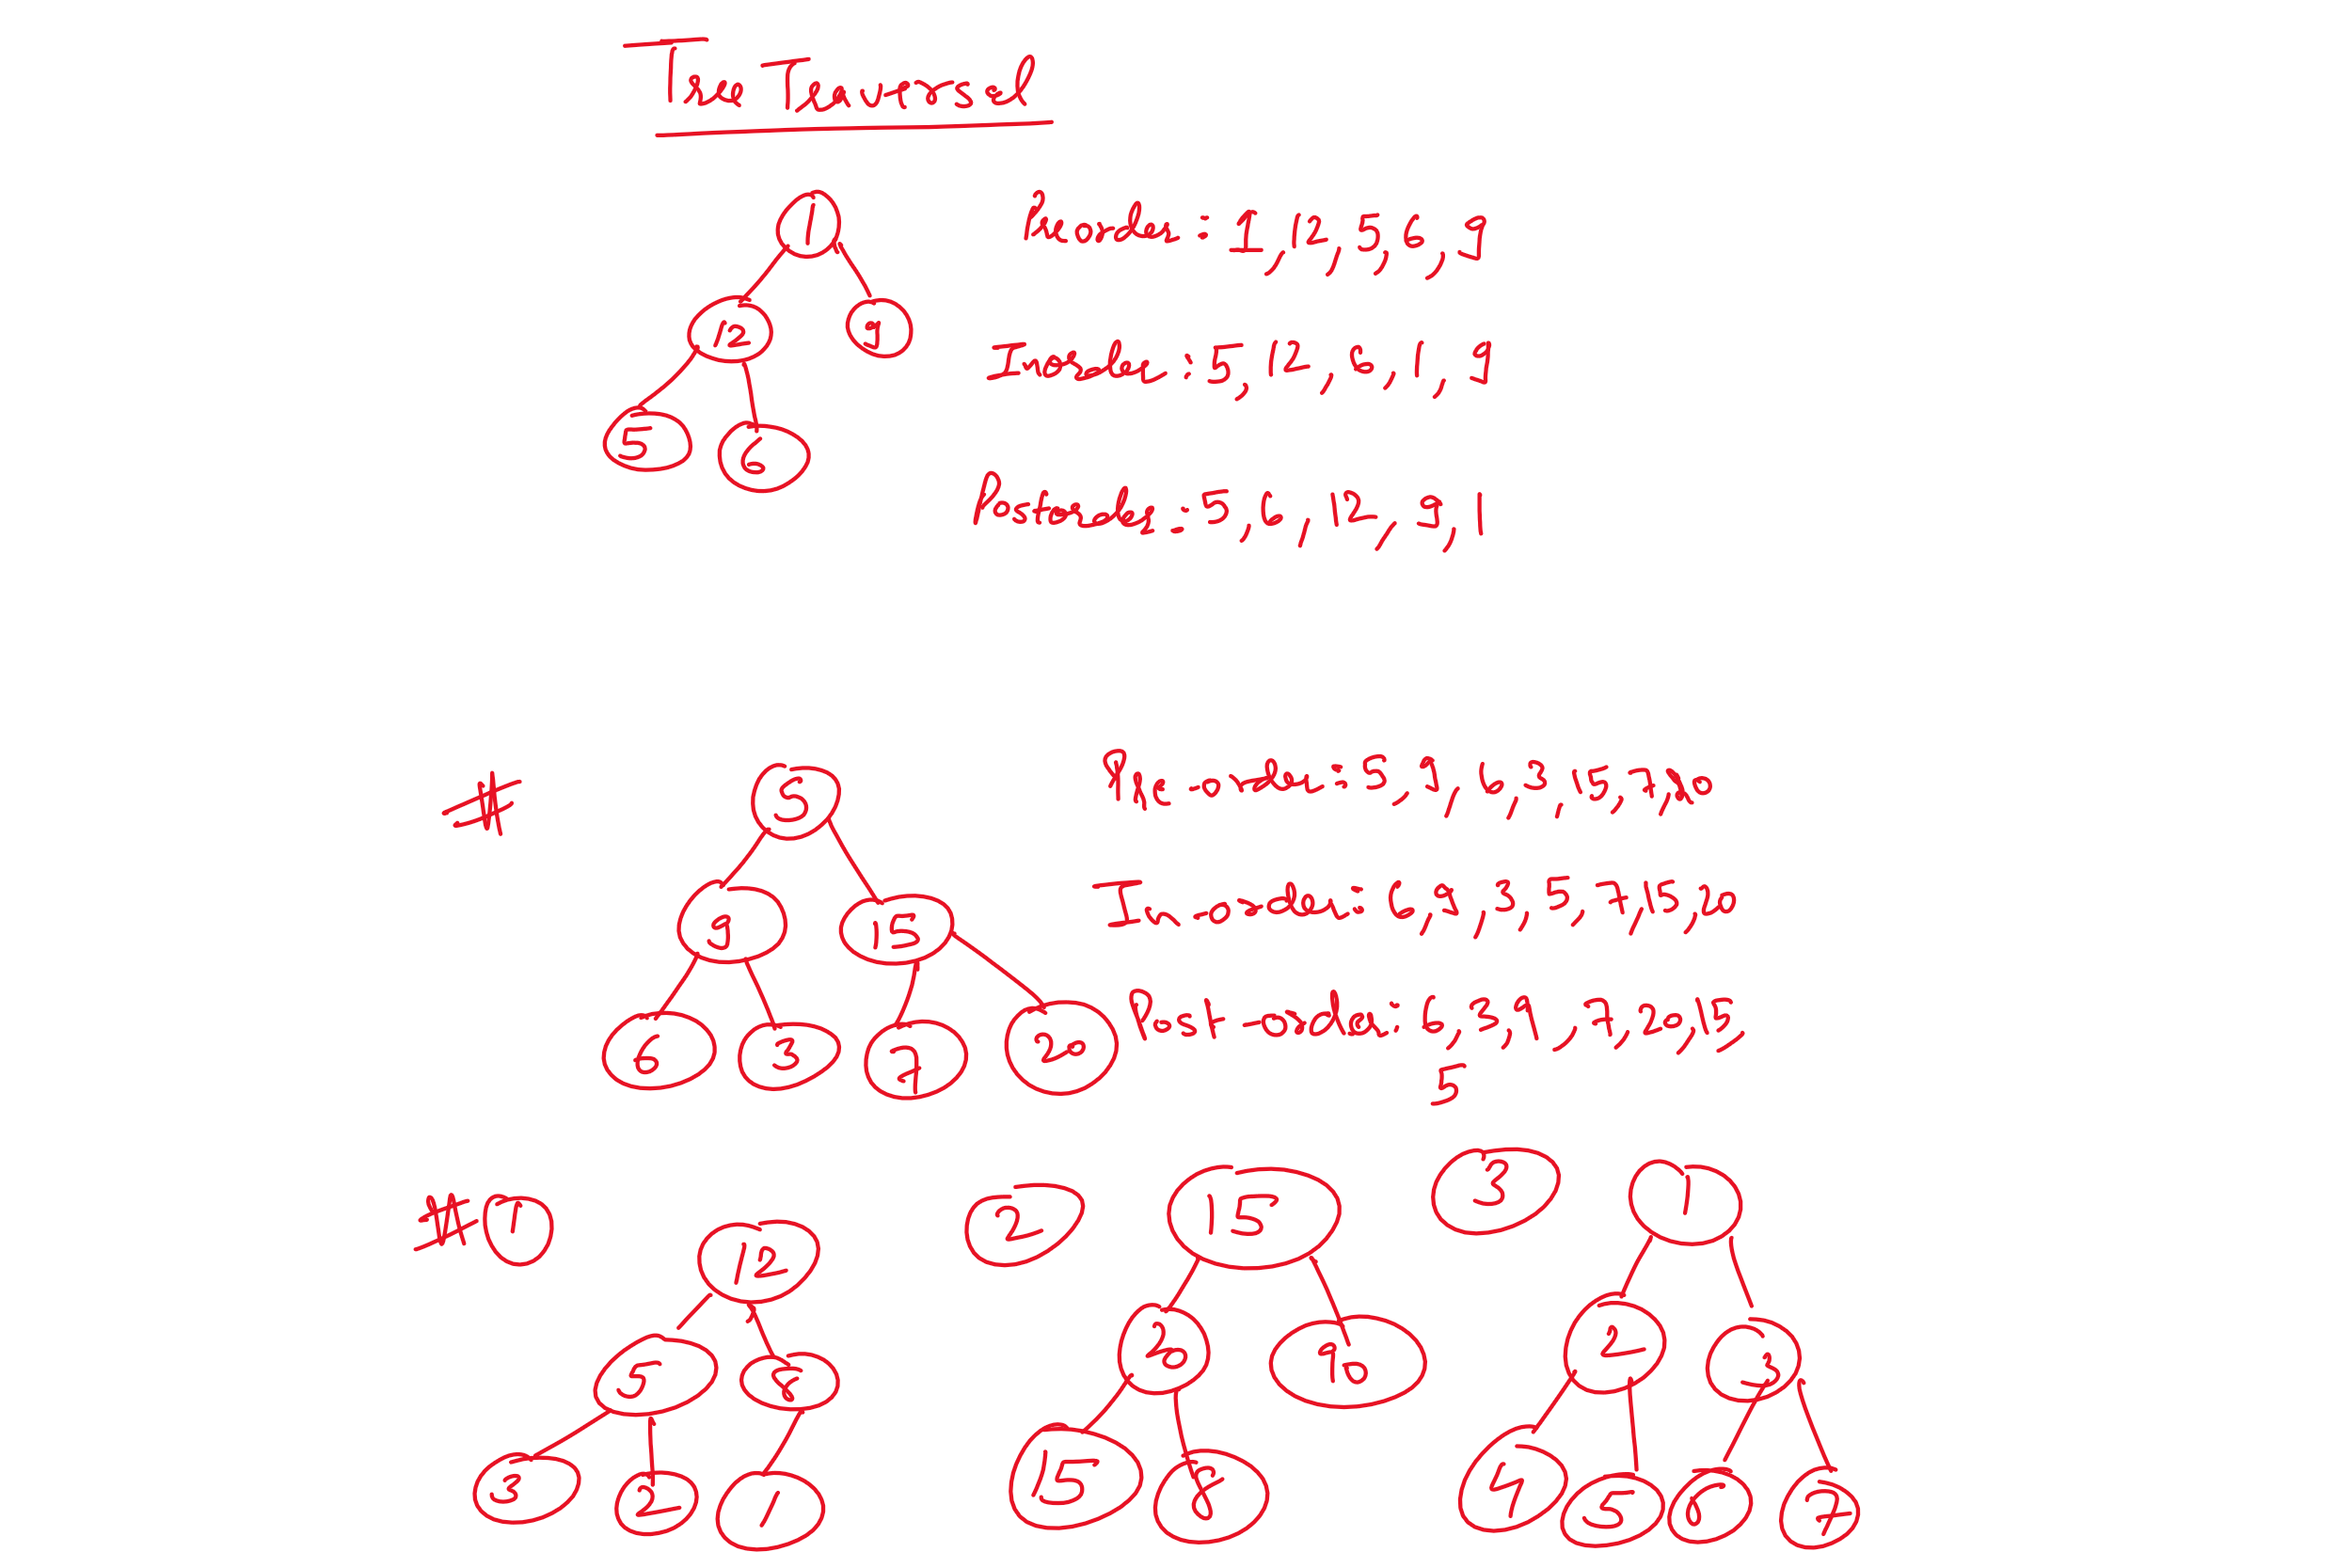 Tree Traversal
1
Preorder: 1, 12, 5, 6, 9
12 9
Inorder: 5, 12, 6, 1, 9
5 6
Postorder: 5, 6, 12, 9, 1
#
5
Pre-order: 5, 9, 6, 3, 15, 7, 20
9 15
In-order: 6, 9, 3, 5, 7, 15, 20
6 3 7 20
Post-order: 6, 3, 9, 7, 20, 15,
5
# 1
12
5 8
3 2 1
2
15
20 96
15 8
3
1
2 3
4 5 6 7